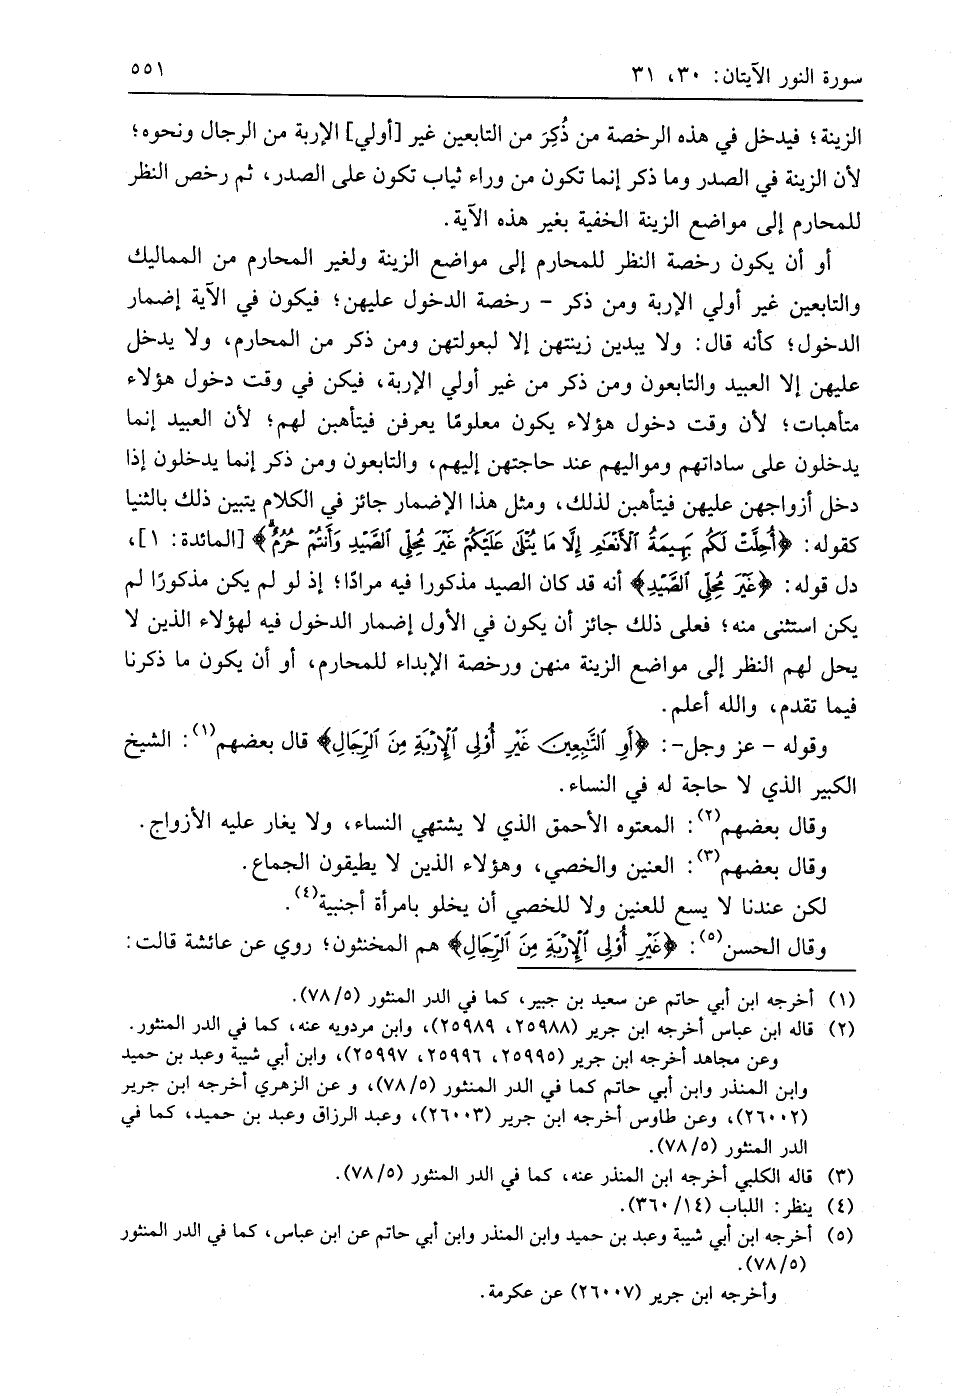 سورة النور الآيتان: ٣٠، ٣١
٥٥١
الزينة؛ فيدخل في هذه الرخصة من ذُكِرَ من التابعين غير [أولي] الإربة من الرجال ونحوه؛
لأن الزينة في الصدر وما ذكر إنما تكون من وراء ثياب تكون على الصدر، ثم رخص النظر
للمحارم إلى مواضع الزينة الخفية بغير هذه الآية.
أو أن يكون رخصة النظر للمحارم إلى مواضع الزينة ولغير المحارم من المماليك
والتابعين غير أولي الإربة ومن ذكر – رخصة الدخول عليهن؛ فيكون في الآية إضمار
الدخول؛ كأنه قال: ولا يبدين زينتهن إلا لبعولتهن ومن ذكر من المحارم، ولا يدخل
عليهن إلا العبيد والتابعون ومن ذكر من غير أولي الإربة، فيكن في وقت دخول هؤلاء
متأهبات؛ لأن وقت دخول هؤلاء يكون معلومًا يعرفن فيتأهبن لهم؛ لأن العبيد إنما
يدخلون على ساداتهم ومواليهم عند حاجتهن إليهم، والتابعون ومن ذكر إنما يدخلون إذا
دخل أزواجهن عليهن فيتأهبن لذلك، ومثل هذا الإضمار جائز في الكلام يتبين ذلك بالثنيا
كقوله: ﴿أُحِلَّتْ لَكُم بَهِيمَةُ الْأَنْعَامِ إِلَّا مَا يُتْلَى عَلَيْكُمْ غَيْرَ مُحِلِّي الصَّيْدِ وَأَنتُمْ حُرُمٌ﴾ [المائدة: ١]،
دل قوله: ﴿غَيْرَ مُحِلِّي الصَّيْدِ﴾ أنه قد كان الصيد مذكورا فيه مرادًا؛ إذ لو لم يكن مذكورًا لم
يكن استثنى منه؛ فعلى ذلك جائز أن يكون في الأول إضمار الدخول فيه لهؤلاء الذين لا
يحل لهم النظر إلى مواضع الزينة منهن ورخصة الإبداء للمحارم، أو أن يكون ما ذكرنا
فيما تقدم، والله أعلم.
وقوله – عز وجل–: ﴿أَوِ التَّابِعِينَ غَيْرِ أُوْلِي الْإِرْبَةِ مِنَ الرِّجَالِ﴾ قال بعضهم(١): الشيخ
الكبير الذي لا حاجة له في النساء.
وقال بعضهم(٢): المعتوه الأحمق الذي لا يشتهي النساء، ولا يغار عليه الأزواج.
وقال بعضهم(٣): العنين والخصي، وهؤلاء الذين لا يطيقون الجماع.
لكن عندنا لا يسع للعنين ولا للخصي أن يخلو بامرأة أجنبية(٤).
وقال الحسن(٥): ﴿غَيْرِ أُوْلِي الْإِرْبَةِ مِنَ الرِّجَالِ﴾ هم المخنثون؛ روي عن عائشة قالت:
(١) أخرجه ابن أبي حاتم عن سعيد بن جبير، كما في الدر المنثور (٧٨/٥).
(٢) قاله ابن عباس أخرجه ابن جرير (٢٥٩٨٨، ٢٥٩٨٩)، وابن مردويه عنه، كما في الدر المنثور.
وعن مجاهد أخرجه ابن جرير (٢٥٩٩٥، ٢٥٩٩٦، ٢٥٩٩٧)، وابن أبي شيبة وعبد بن حميد
وابن المنذر وابن أبي حاتم كما في الدر المنثور (٧٨/٥)، و عن الزهري أخرجه ابن جرير
(٢٦٠٠٢)، وعن طاوس أخرجه ابن جرير (٢٦٠٠٣)، وعبد الرزاق وعبد بن حميد، كما في
الدر المنثور (٧٨/٥).
(٣) قاله الكلبي أخرجه ابن المنذر عنه، كما في الدر المنثور (٧٨/٥).
(٤) ينظر: اللباب (٣٦٠/١٤).
(٥) أخرجه ابن أبي شيبة وعبد بن حميد وابن المنذر وابن أبي حاتم عن ابن عباس، كما في الدر المنثور
(٧٨/٥).
وأخرجه ابن جرير (٢٦٠٠٧) عن عكرمة.